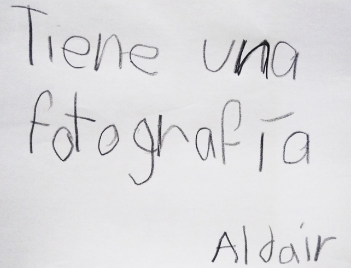 Tiene una
fotografía
Aldair